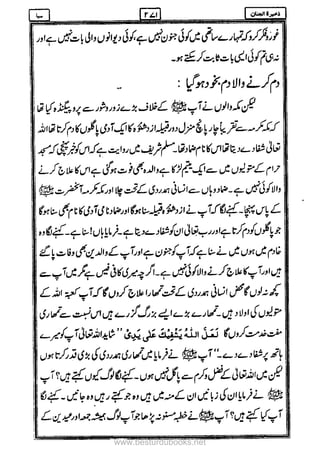 ذخیرة الجنان
۲۷۱
سبا
غور و فکر کرو کہ تمہارے ساتھی میں کوئی جنون نہیں ہے، کوئی دیوانوں والی بات نہیں ہے اور
نہ ہی تم کوئی ایسی بات ثابت کر سکتے ہو۔
دم کرنے والا دم بخود ہو گیا :
لیکن مکہ والوں نے آپ ﷺ کے خلاف بڑے زور و شور سے پروپیگنڈہ کیا تھا
کہ مکہ مکرمہ سے تقریباً چار پانچ منزل دور قبیلہ از دشنوءہ کا ایک آدمی پاگلوں کا دم کرتا تھا اللہ
تعالیٰ شفاء دے دیتا تھا اس کا نام ضماد تھا۔ مسلم شریف میں روایت ہے کہ اس کو خبر پہنچی کہ مسجد
حرام کے متولیوں میں سے ایک یتیم لڑکا ہے والدہ بھی فوت ہو گئی ہے اس کا علاج کرنے
والا کوئی نہیں ہے۔ ضماد وہاں سے انسانی ہمدردی کے تحت چلا اور مکہ مکرمہ آنحضرت ﷺ
کے پاس پہنچا۔ کہنے لگا کہ آپ نے از دشنوءہ قبیلہ سنا ہو گا اور ضماد نامی آدمی کا نام بھی سنا ہو گا
جو پاگلوں کو دم کرتا ہے اور رب تعالیٰ ان کو شفا دے دیتا ہے۔ فرمایا ہاں! سنا ہے۔ کہنے لگا وہ
خادم میں ہوں میں نے سنا ہے کہ آپ کو جنون ہے اور آپ کے والدین بھی وفات پا گئے
ہیں اور آپ کا علاج کرنے والا کوئی نہیں ہے۔ اگر چہ میری کافی فیس ہے مگر میں آپ سے
کچھ نہ لوں گا محض انسانی ہمدردی کے تحت تمھارا علاج کروں گا کہ آپ کعبۃ اللہ کے
متولیوں کی اولاد ہیں۔ تمھارے بڑے ایسے بزرگ گزرے ہیں اس نسبت سے تمھاری
مفت خدمت کروں گا لَعَلَّ اللّٰهَ يَشْفِيْكَ عَلٰى يَدِيْ ’’شاید اللہ تعالیٰ آپ کو میرے
ہاتھ پر شفا دے دے۔‘‘ آپ ﷺ نے فرمایا میں تمھاری ہمدردی کی بڑی قدر کرتا ہوں
لیکن میں اللہ تعالیٰ کے فضل و کرم سے پاگل نہیں ہوں۔ کہنے لگا لوگ کیوں کہتے ہیں؟ آپ
ﷺ نے فرمایا ان کی زبانیں ان کے منہ میں ہیں وہ جو کہتے رہیں وہ جانیں۔ کہنے لگا
آپ کیا کہتے ہیں؟ آپ ﷺ نے خطبہ مسنونہ پڑھا جو آپ لوگ ہمیشہ جمعہ اور عیدین کے
www.besturdubooks.net